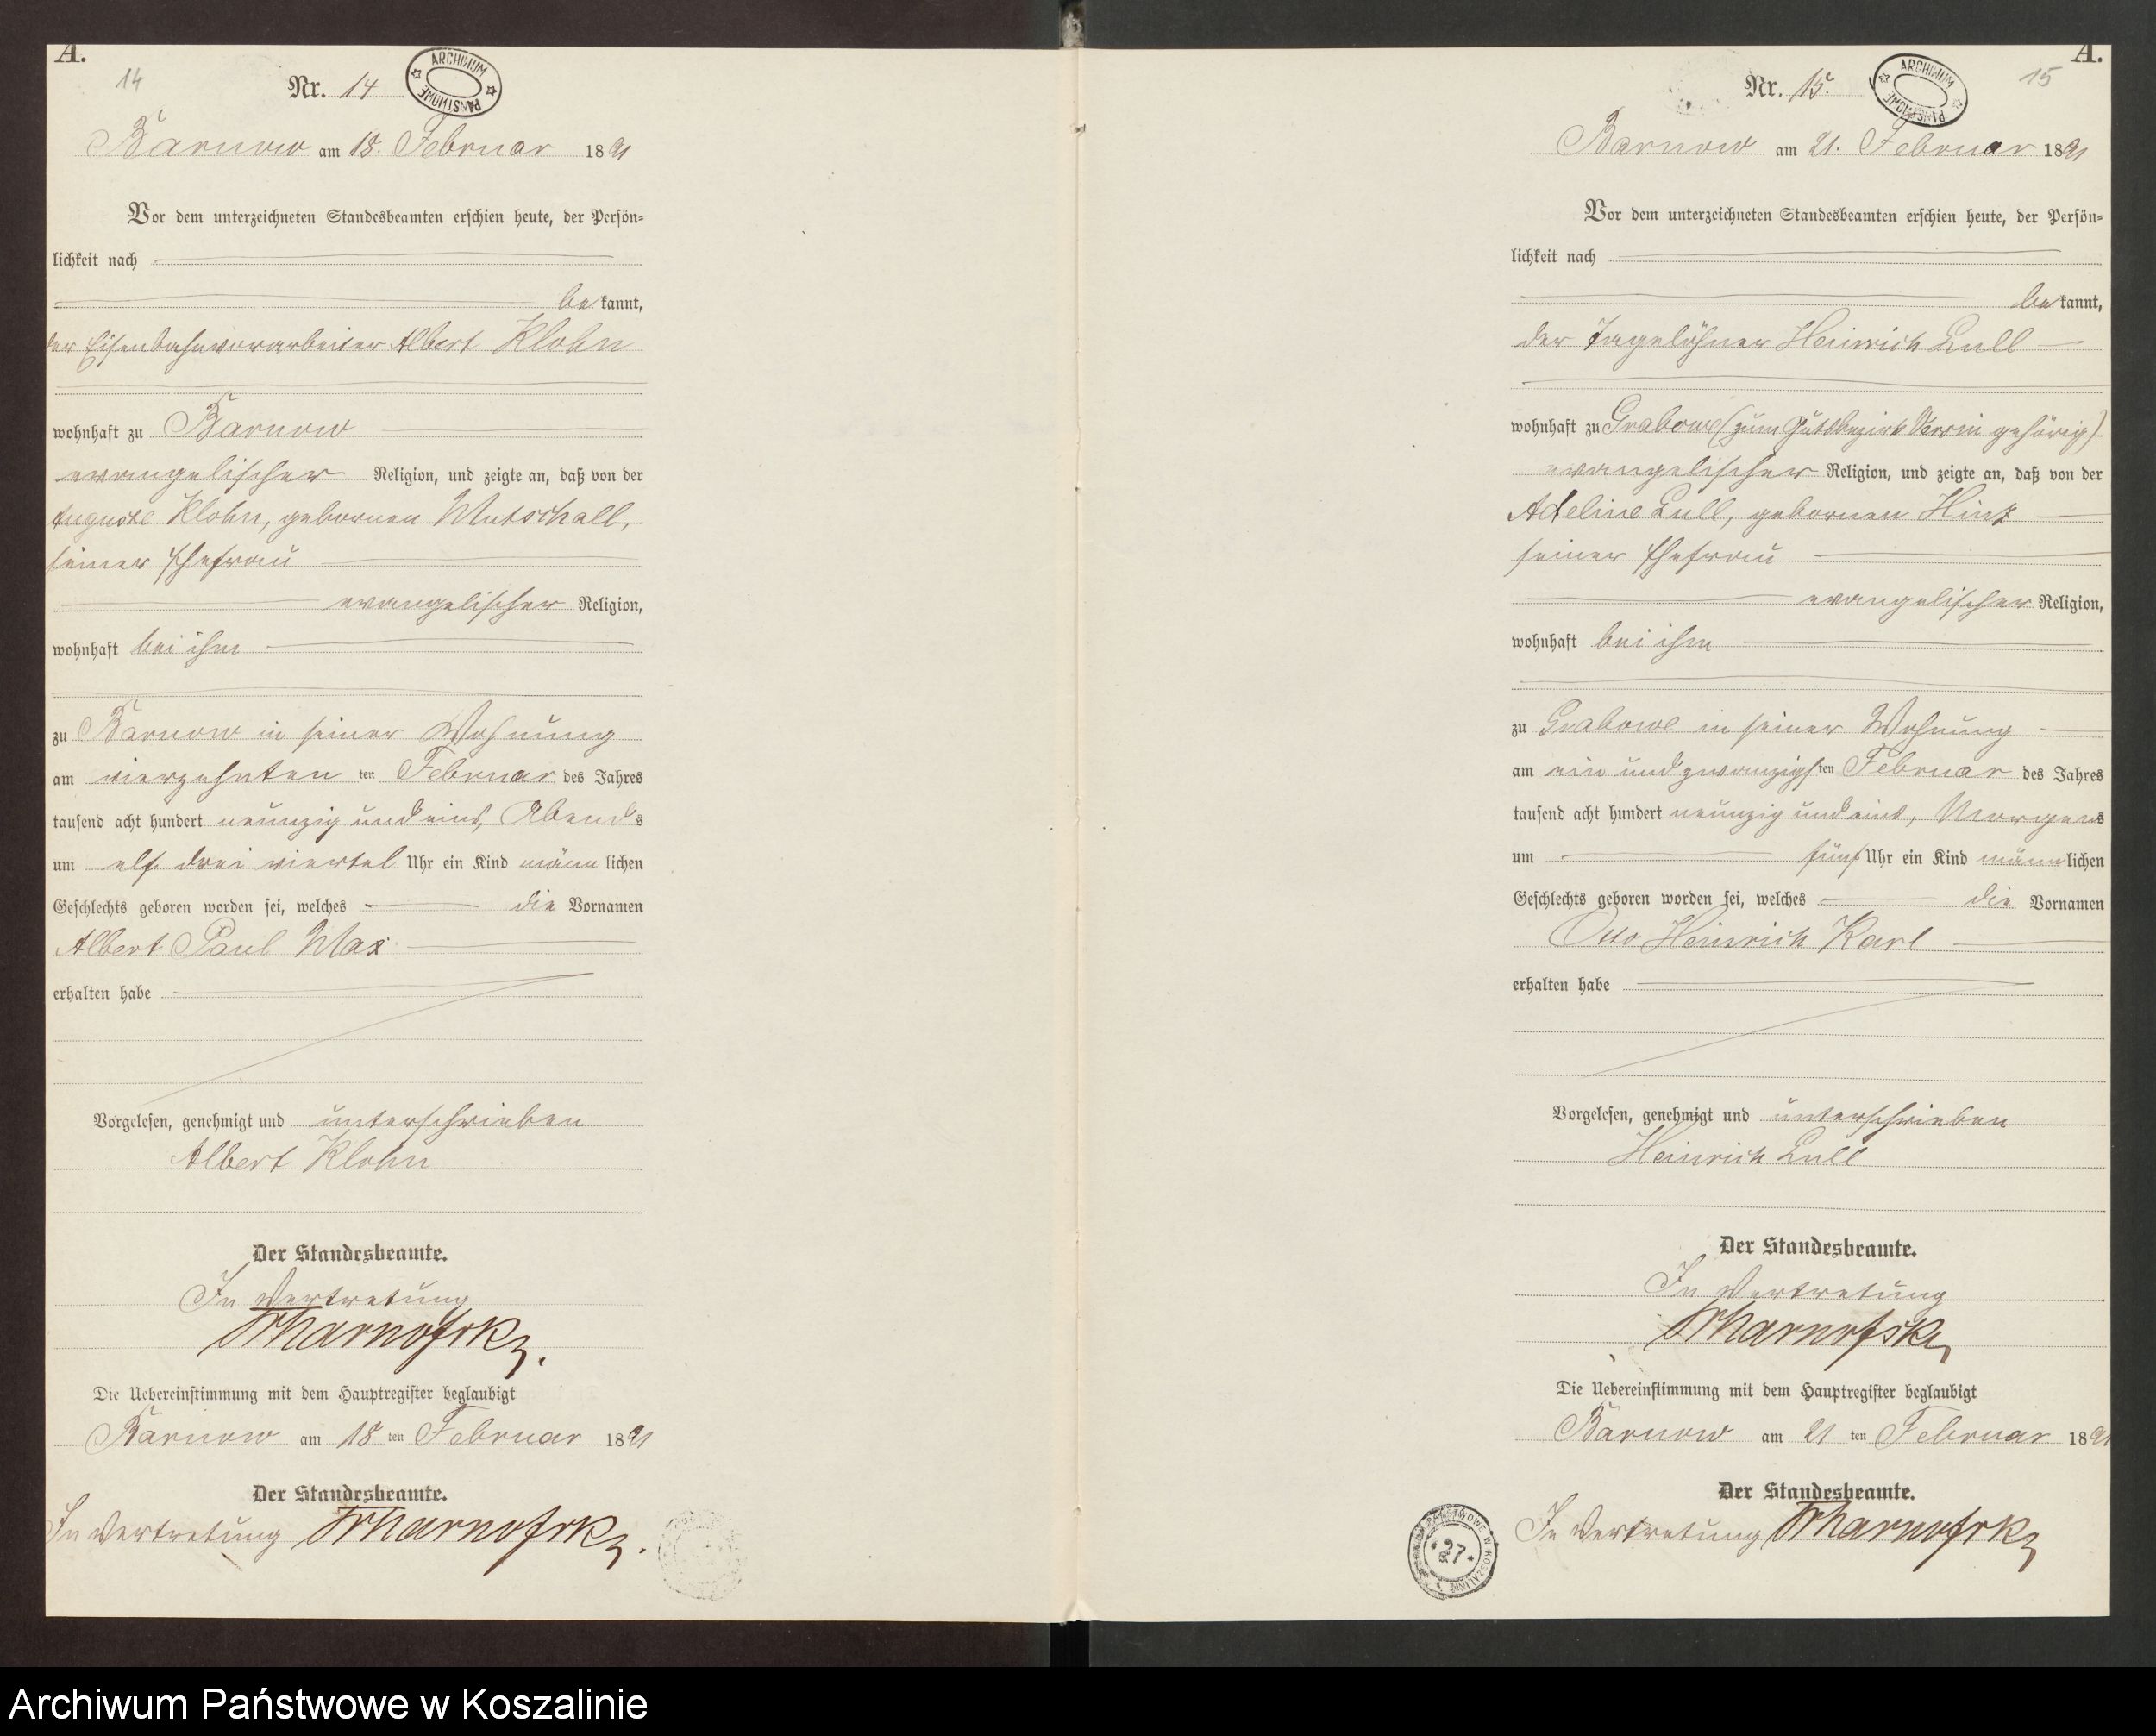 A.
14
Nr. 14
ARCHIWUM PAŃSTWOWE
Barnow am 18. Februar 1891
Vor dem unterzeichneten Standesbeamten erschien heute, der Persön=
lichkeit nach
be kannt,
der Eisenbahnvorarbeiter Albert Klohn
wohnhaft zu Barnow
evangelischer Religion, und zeigte an, daß von der
Auguste Klohn, geborenen Mutschall,
seiner Ehefrau
evangelischer Religion,
wohnhaft bei ihm
zu Barnow in seiner Wohnung
am vierzehnten ten Februar des Jahres
tausend acht hundert neunzig und eins, Abends
um elf drei viertel Uhr ein Kind männ lichen
Geschlechts geboren worden sei, welches die Vornamen
Albert Paul Max
erhalten habe
Vorgelesen, genehmigt und unterschrieben
Albert Klohn
Der Standesbeamte.
In Vertretung
Die Uebereinstimmung mit dem Hauptregister beglaubigt
Barnow am 18 ten Februar 1891
Der Standesbeamte.
In Vertretung
A.
15
Nr. 15.
ARCHIWUM PAŃSTWOWE
Barnow am 21. Februar 1891
Vor dem unterzeichneten Standesbeamten erschien heute, der Persön=
lichkeit nach
be kannt,
der Tagelöhner Heinrich Lull
wohnhaft zu Grabowe (zum Gutsbezirk Versin gehörig)
evangelischer Religion, und zeigte an, daß von der
Adeline Lull, geborenen Hinz
seiner Ehefrau
evangelischer Religion,
wohnhaft bei ihm
zu Grabowe in seiner Wohnung
am ein und zwanzigsten Februar des Jahres
tausend acht hundert neunzig und eins, Morgens
um fünf Uhr ein Kind männ lichen
Geschlechts geboren worden sei, welches die Vornamen
Otto Heinrich Karl
erhalten habe
Vorgelesen, genehmigt und unterschrieben
Heinrich Lull
Der Standesbeamte.
In Vertretung
Die Uebereinstimmung mit dem Hauptregister beglaubigt
Barnow am 21 ten Februar 1891
Der Standesbeamte.
In Vertretung
27
Archiwum Państwowe w Koszalinie